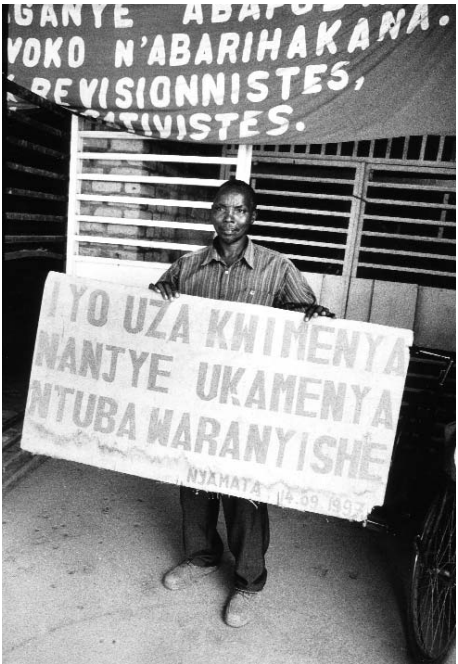 GANYE
N'ABARIHAKANA.
REVISIONNISTES,
ATIVISTES.
IYO UZA KWIMENYA
NANJYE UKAMENYA
NTUBA WARANYISHE
NYAMATA 14.09.1997